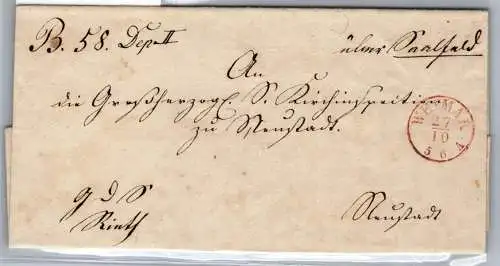 B. 58. Dep. II
über Saalfeld
An
die Großherzogl. S. Kirchinspection
zu Neustadt.
WEIMAR
27
10
5 6 A
g d S
Rieth
Neustadt